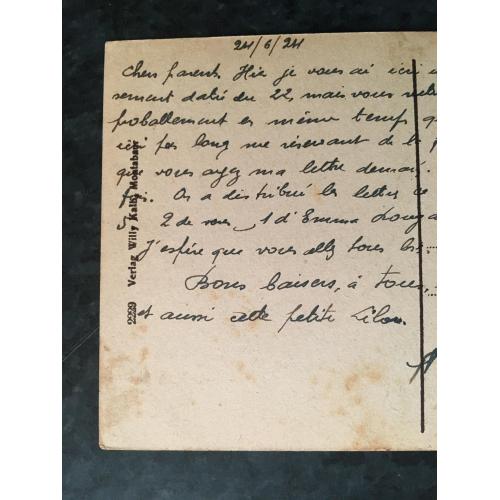 24/6/24
Chers parents. Hier je vous ai écri
sement daté du 22, mais vous
proballement en même temps
ici pas long me réservant de la
que vous ayez ma lettre demain.
On a distribué les lettres ce
2 de vous 1 d'Emma
J'espère que vous allez tous
Bons baisers, à tous,
et aussi cette petite Lilou.
2229 Verlag Willy Kalb, Montabaur